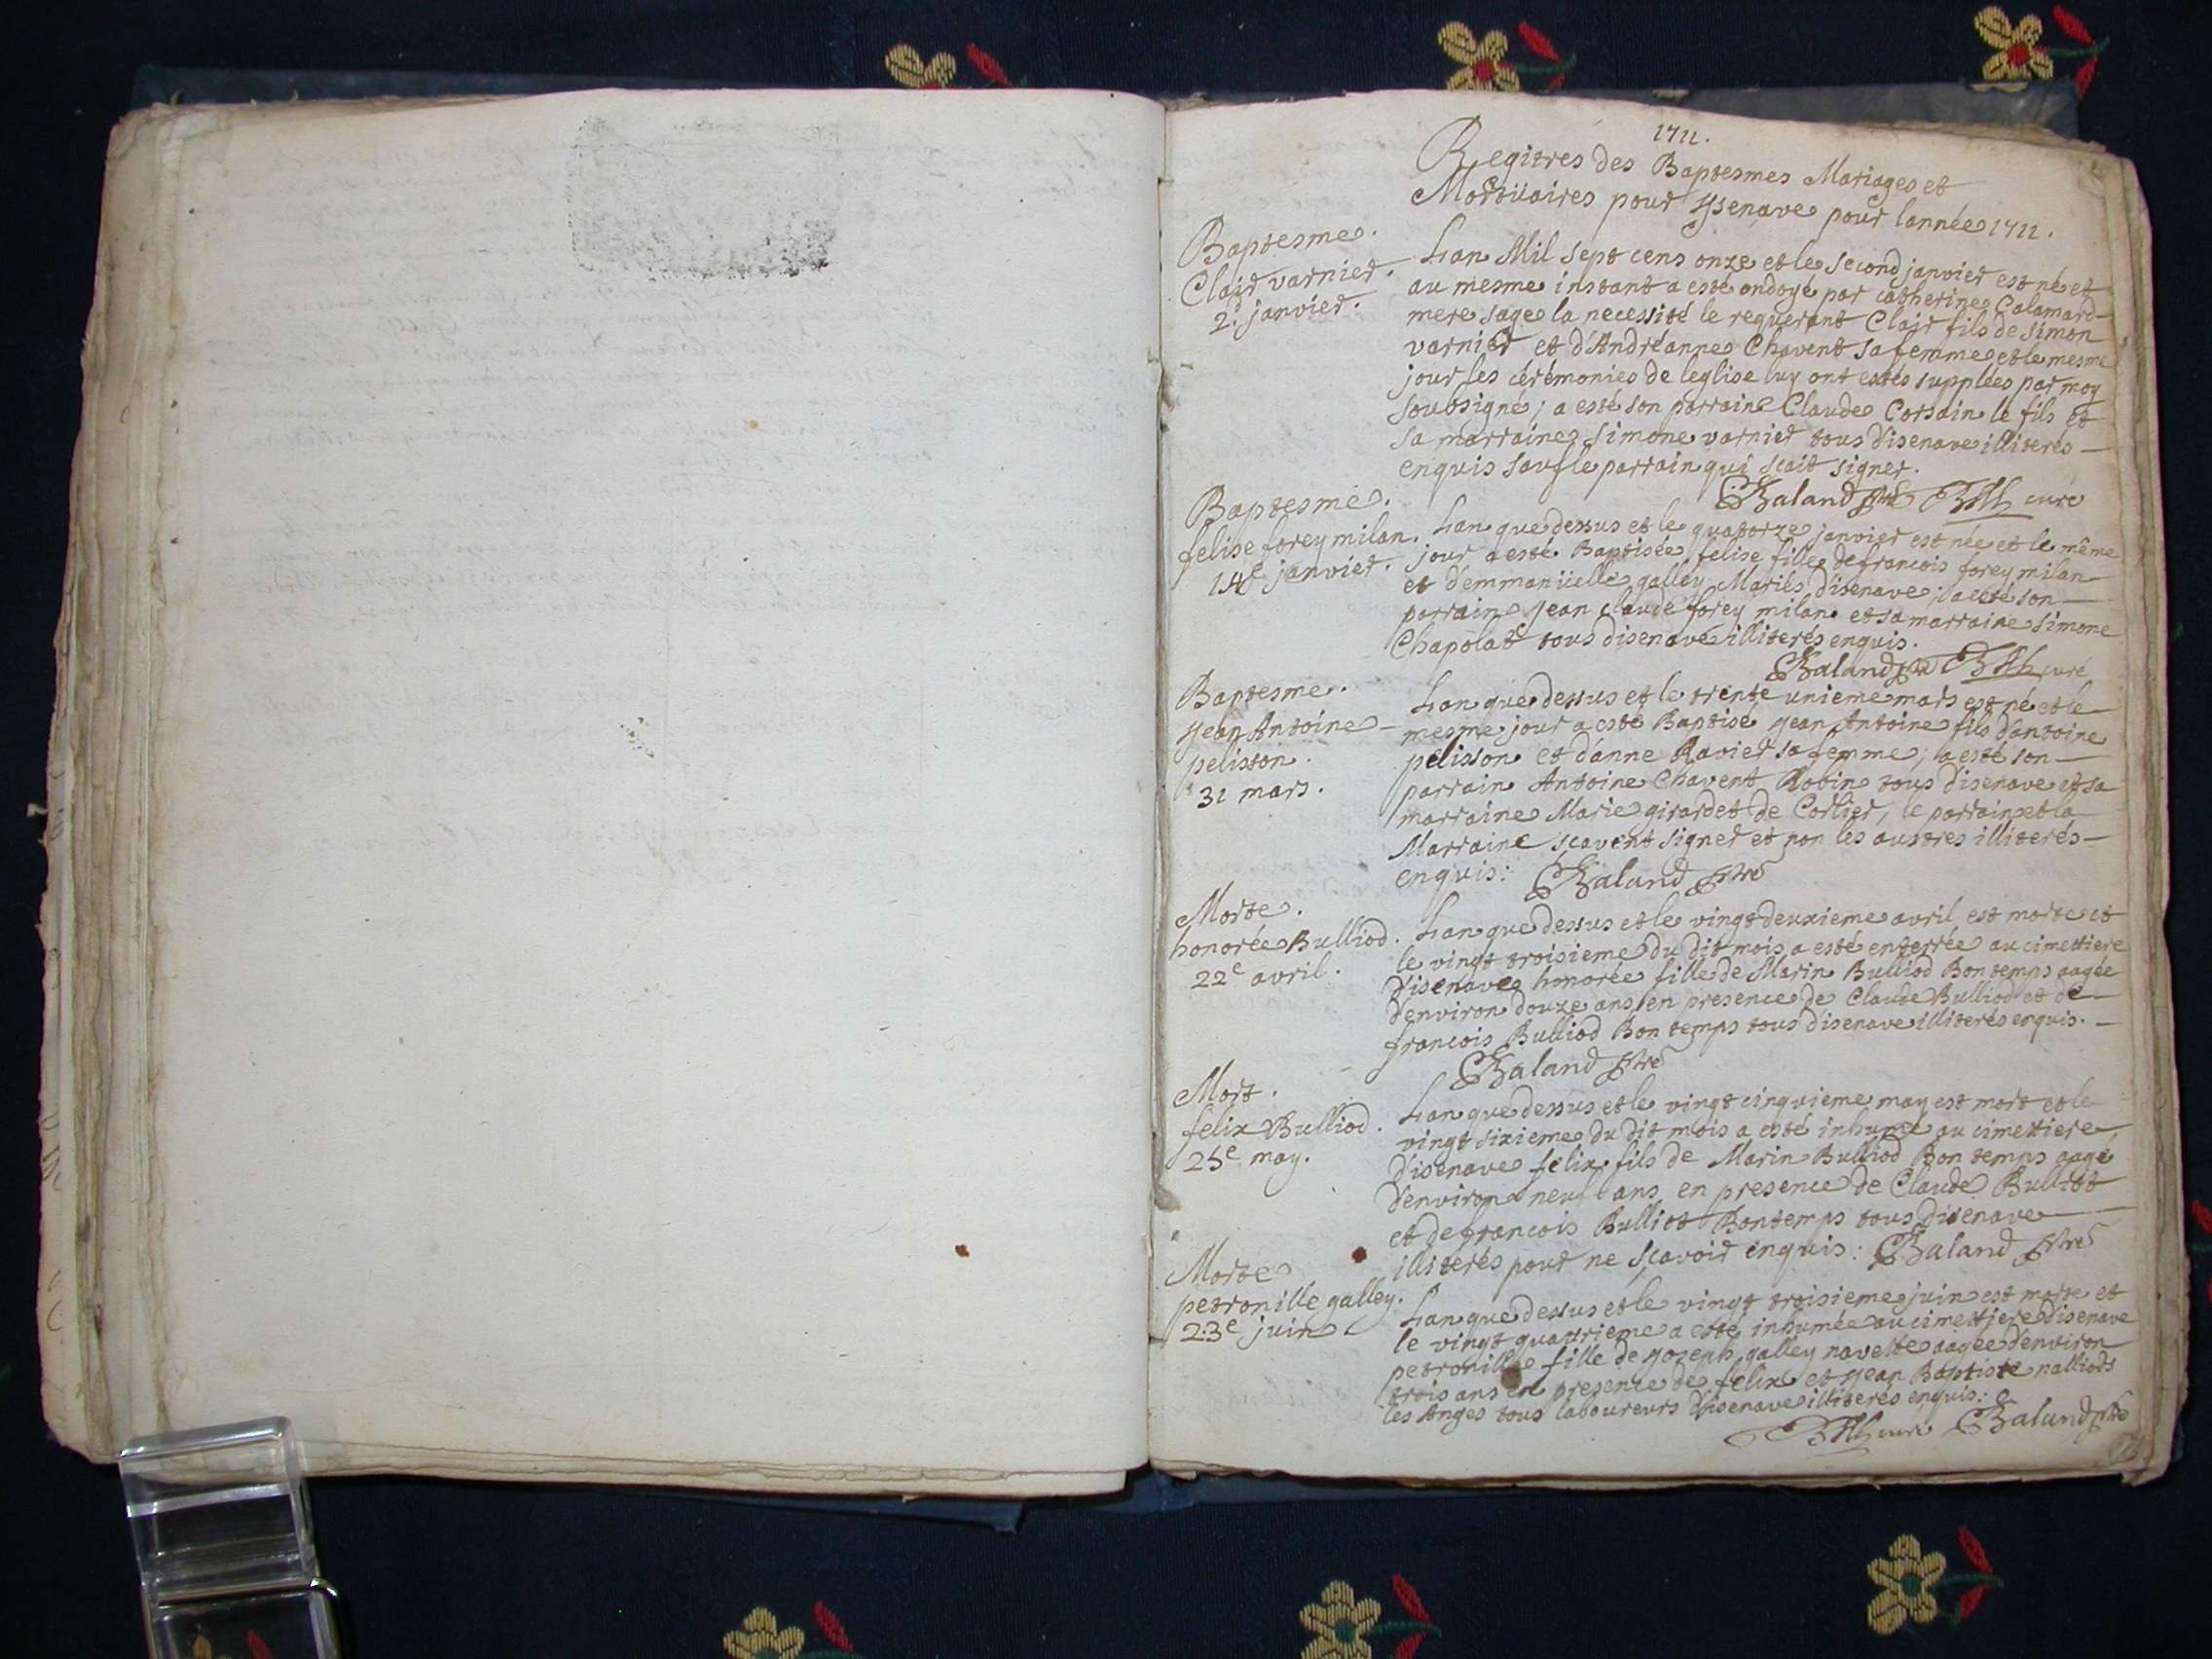 1711.
Regitres des Baptesmes Mariages et
Mortuaires pour ysenave pour lannée 1711.
Baptesme.
Clair varnier.
2.d janvier.
Lan Mil sept cens onze et le second janvier est né et
au mesme instant a esté ondoyé par catherine Calamard
mere sage la necessité le requerant Clair fils de simon
varnier et d'Andréanne Chavent sa femme et le mesme
jour les cérémonies de leglise luy ont estés supplées par moy
soubsigné; a esté son parrain Claude Corsain le fils et
sa marraine simone varnier tous d'isenave illiterés
enquis sauf le parrain qui scait signer.
Chaland ptre curé
Baptesme.
felise forey milan.
14e janvier.
Lan que dessus et le quatorze janvier est née et le même
jour a esté Baptisée felise fille de francois forey milan
et d'emmanüelle galley Mariés disenave; a esté son
parrain jean claude forey milan et sa marraine simone
Chapolat tous disenave illiterés enquis.
Chaland ptre curé
Baptesme.
jean Antoine
pelisson.
31 mars.
Lan que dessus et le trente unieme mars est né et le
mesme jour a esté Baptisé jean Antoine fils d'antoine
pelisson et d'anne Ravier sa femme; a esté son
parrain Antoine Chavent Robin tous disenave et sa
marraine Marie girardet de Corlier, le parrain et la
Marraine scavent signer et non les austres illiterés
enquis: Chaland ptre
Morte.
honorée Bulliod.
22e avril.
Lan que dessus et le vingt deuxieme avril est morte et
le vingt troisieme du dit mois a esté enterrée au cimettiere
d'isenave honorée fille de Marin Bulliod Bon temps aagée
d'environ douze ans en presence de Claude Bulliod et de
francois Bulliod Bon temps tous disenave illiterés enquis.
Chaland ptre
Mort.
felix Bulliod.
25e may.
Lan que dessus et le vingt cinquieme may est mort et le
vingt sixieme du dit mois a esté inhumé au cimettiere
d'isenave felix fils de Marin Bulliod Bon temps aagé
d'environ neuf ans en presence de Claude Bulliot
et de francois Bulliot Bontemps tous disenave
illiterés pour ne scavoir enquis: Chaland ptre
Morte
petronille galley.
23e juin
Lan que dessus et le vingt troisieme juin est morte et
le vingt quatrieme a esté inhumée au cimettiere disenave
petronille fille de joseph galley navette aagée d'environ
trois ans en presence de felix et jean Baptiste nalliods
les Anges tous laboureurs d'isenave illiterés enquis:
curé Chaland ptre